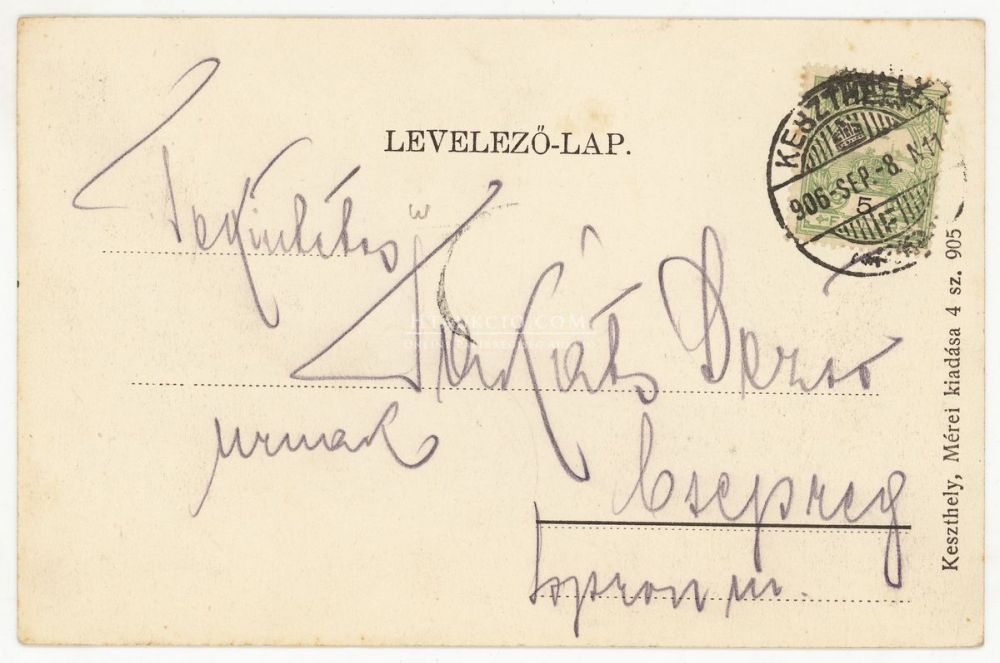 LEVELEZŐ-LAP.
KESZTHELY
906 SEP.-8. N11
5
Tekintetes
Takáts Dezső
urnak
Csepreg
Sopron m.
Keszthely, Mérei kiadása 4 sz. 905